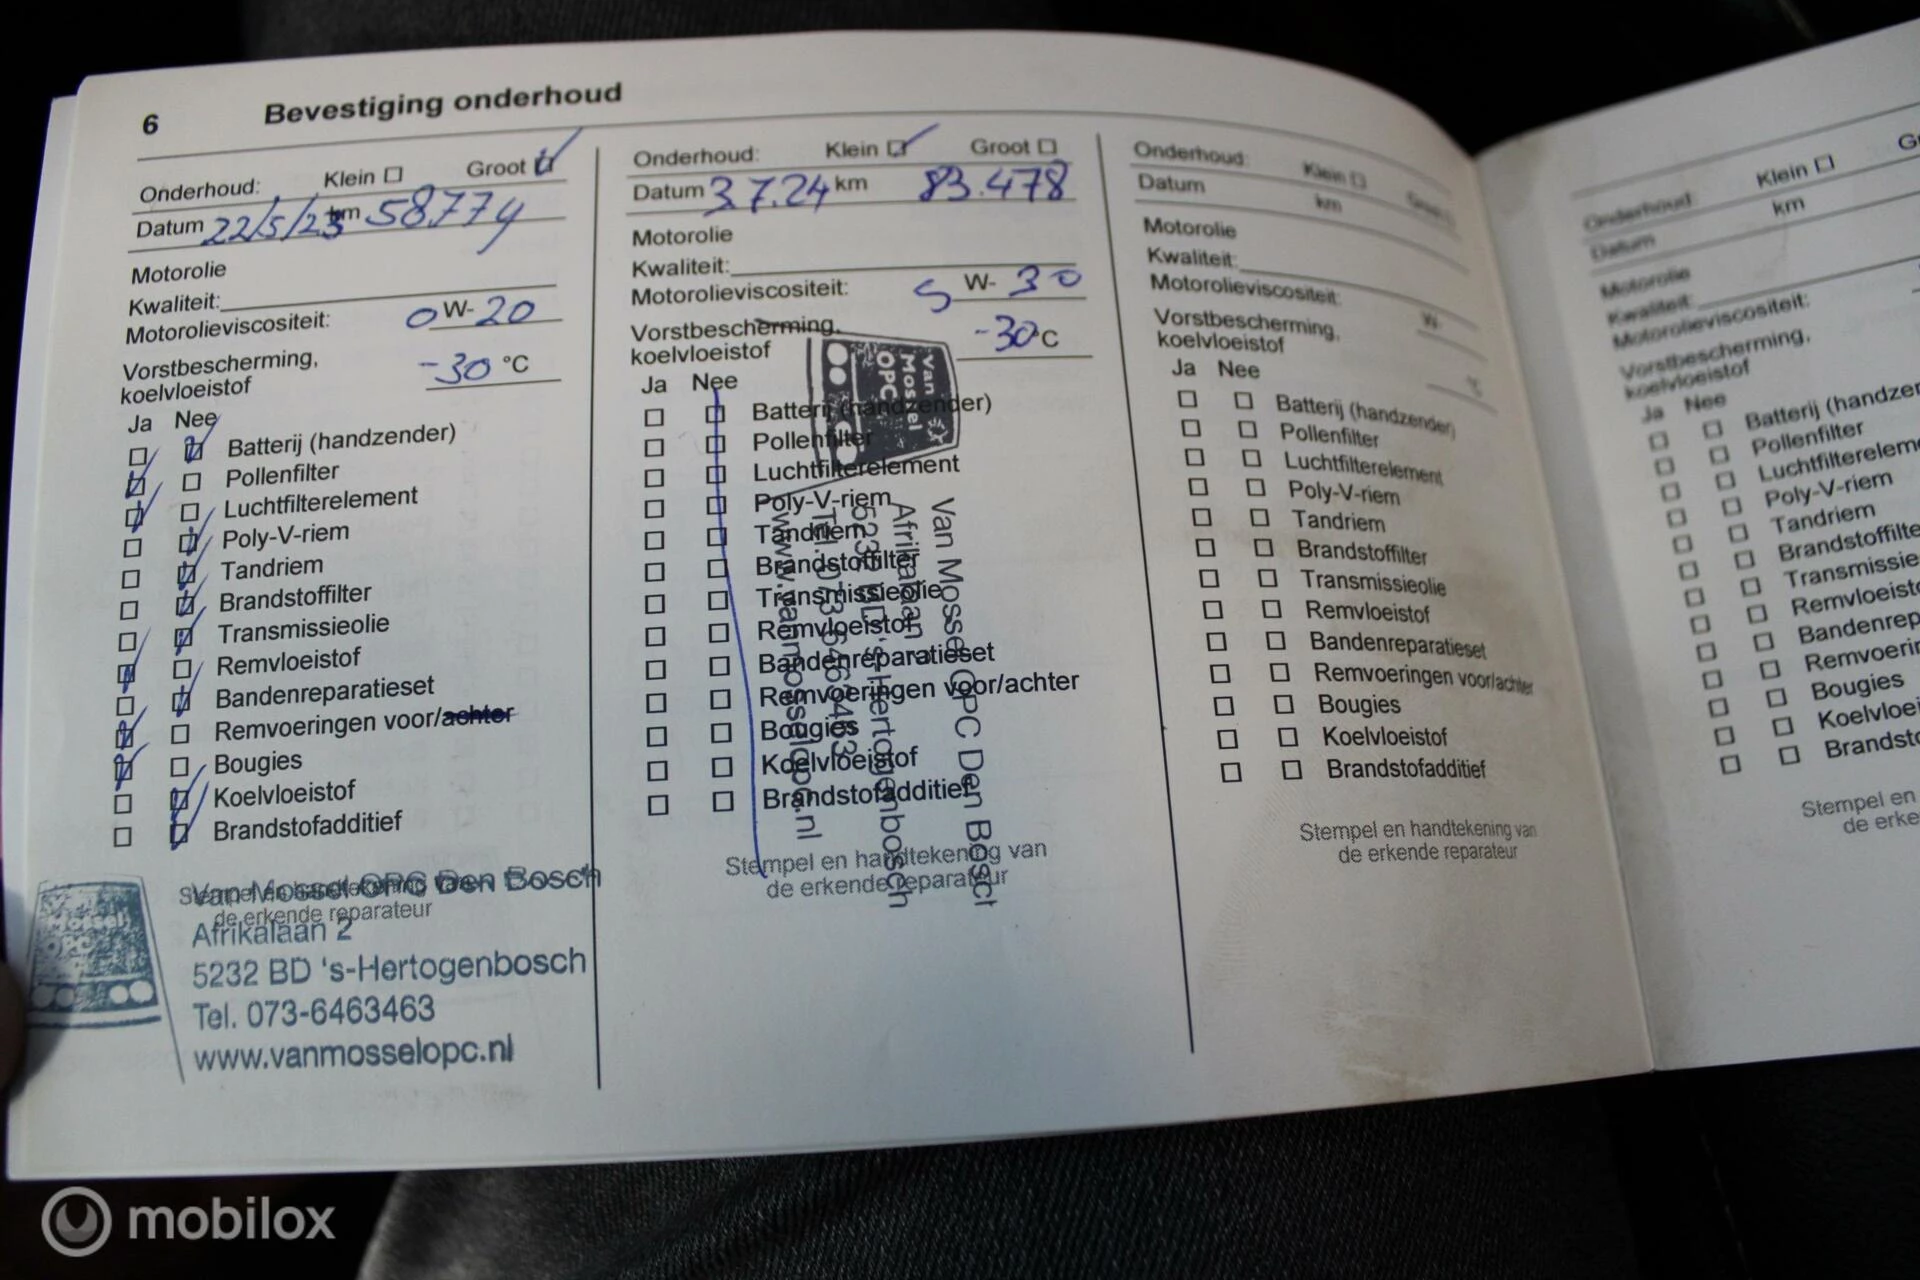 6 Bevestiging onderhoud
Onderhoud: Klein Groot
Datum 22/5/23 km 58.774
Motorolie
Kwaliteit:
Motorolieviscositeit: 0 W- 20
Vorstbescherming,
koelvloeistof -30 °C
Ja Nee
Batterij (handzender)
Pollenfilter
Luchtfilterelement
Poly-V-riem
Tandriem
Brandstoffilter
Transmissieolie
Remvloeistof
Bandenreparatieset
Remvoeringen voor/achter
Bougies
Koelvloeistof
Brandstofadditief
Stempel en handtekening van
de erkende reparateur
Van Mossel OPC Den Bosch
Afrikalaan 2
5232 BD 's-Hertogenbosch
Tel. 073-6463463
www.vanmosselopc.nl
Onderhoud: Klein Groot
Datum 3.7.24 km 83.478
Motorolie
Kwaliteit:
Motorolieviscositeit: 5 W- 30
Vorstbescherming,
koelvloeistof -30 °C
Ja Nee
Batterij (handzender)
Pollenfilter
Luchtfilterelement
Poly-V-riem
Tandriem
Brandstoffilter
Transmissieolie
Remvloeistof
Bandenreparatieset
Remvoeringen voor/achter
Bougies
Koelvloeistof
Brandstofadditief
Stempel en handtekening van
de erkende reparateur
Van
Mossel
OPC
Van Mossel OPC Den Bosch
Afrikalaan 2
5232 BD 's-Hertogenbosch
Tel. 073-6463463
www.vanmosselopc.nl
Onderhoud: Klein Groot
Datum km
Motorolie
Kwaliteit:
Motorolieviscositeit: W-
Vorstbescherming,
koelvloeistof °C
Ja Nee
Batterij (handzender)
Pollenfilter
Luchtfilterelement
Poly-V-riem
Tandriem
Brandstoffilter
Transmissieolie
Remvloeistof
Bandenreparatieset
Remvoeringen voor/achter
Bougies
Koelvloeistof
Brandstofadditief
Stempel en handtekening van
de erkende reparateur
Onderhoud: Klein
Datum km
Motorolie
Kwaliteit:
Motorolieviscositeit:
Vorstbescherming,
koelvloeistof
Ja Nee
Batterij (handzender
Pollenfilter
Luchtfilterelem
Poly-V-riem
Tandriem
Brandstoffilte
Transmissie
Remvloeist
Bandenrep
Remvoerin
Bougies
Koelvloei
Brandsto
Stempel en
de erke
mobilox